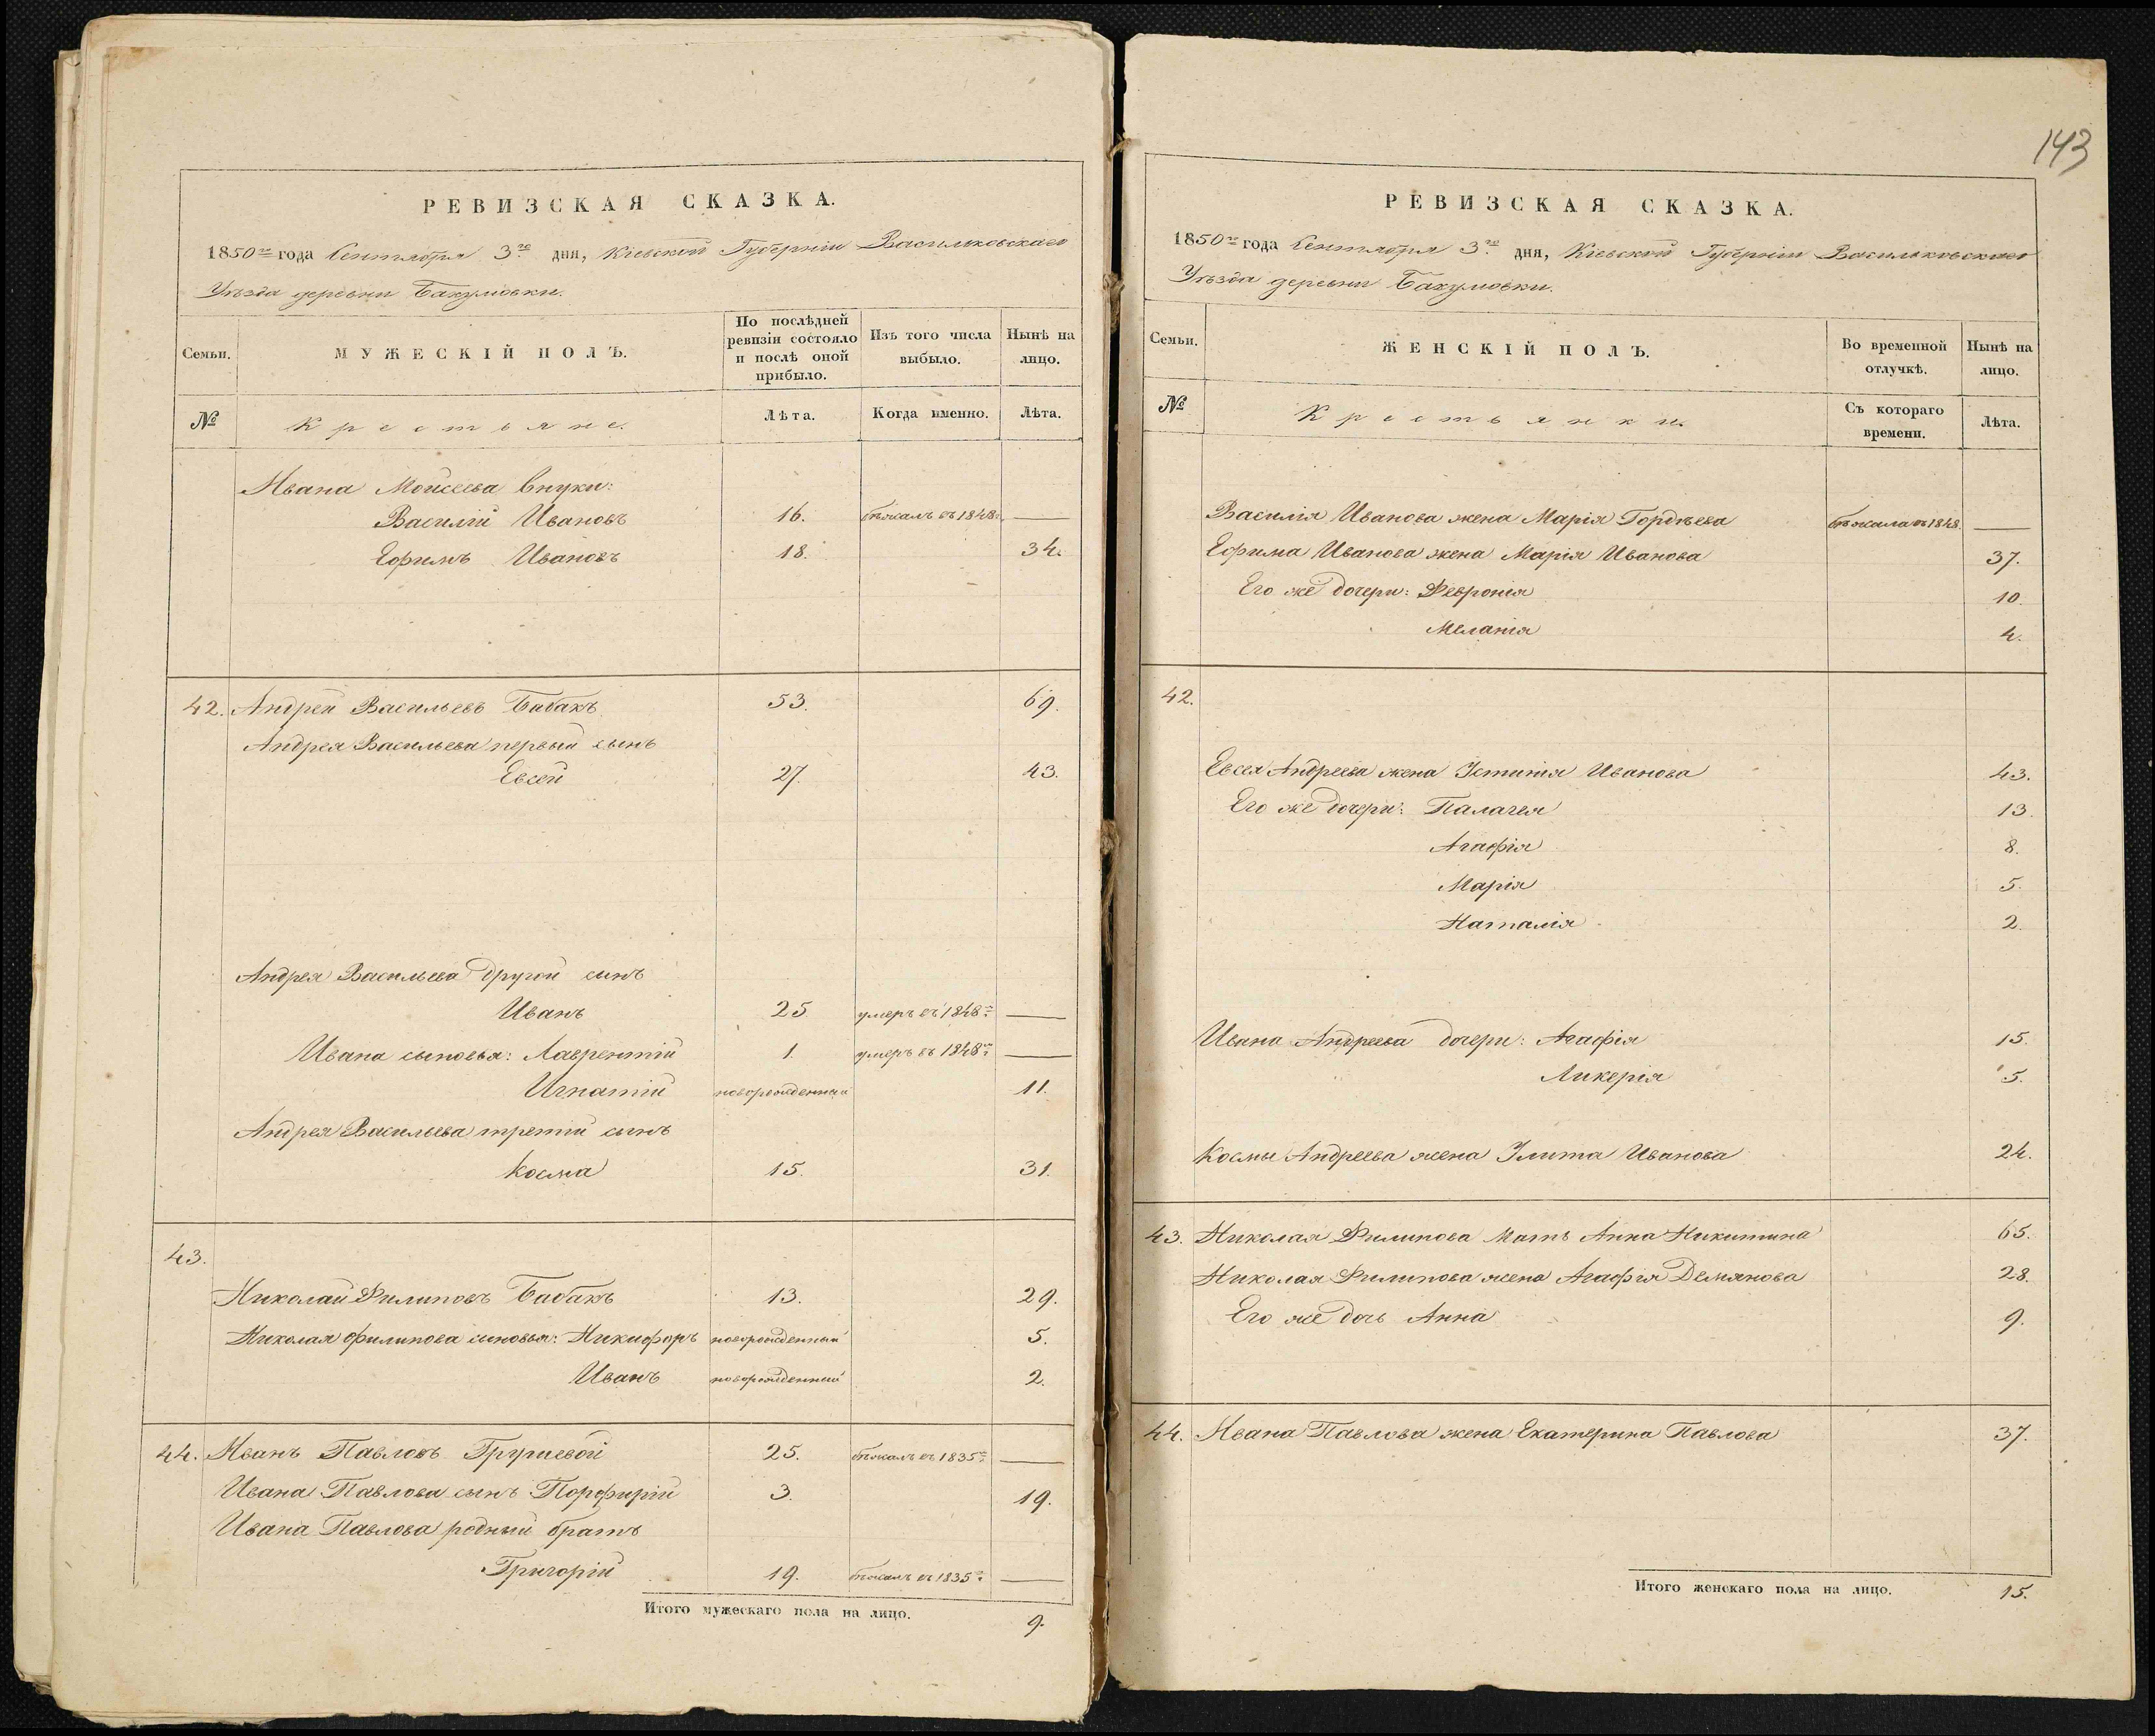 143
РЕВИЗСКАЯ СКАЗКА.
1850го года Сентября 3го дня, Кіевской Губерніи Васильковскаго
Уѣзда деревни Бахумовки.
Семьи.
МУЖЕСКІЙ ПОЛЪ.
По послѣдней ревизіи состояло и послѣ оной прибыло.
Изъ того числа выбыло.
Нынѣ на лицо.
№
Крестьяне.
Лѣта.
Когда именно.
Лѣта.
Ивана Моисеева внуки:
Василій Ивановъ 16. бѣжалъ въ 1848 —
Ефимъ Ивановъ 18. 34.
42. Андрей Васильевъ Бабакъ 53. 69.
Андрея Васильева первый сынъ
Евсей 27. 43.
Андрея Васильева другой сынъ
Иванъ 25 умеръ въ 1848го —
Ивана сыновья: Лаврентій 1. умеръ въ 1848го —
Игнатій новорожденный 11.
Андрея Васильева третій сынъ
Косма 15. 31.
43.
Николай Филиповъ Бабакъ 13. 29.
Николая Филипова сыновья: Никифоръ новорожденный 5.
Иванъ новорожденный 2.
44. Иванъ Павловъ Грушевой 25. бѣжалъ въ 1835го —
Ивана Павлова сынъ Порфирій 3. 19.
Ивана Павлова родный братъ
Григорій 19. бѣжалъ въ 1835го —
Итого мужескаго пола на лицо. 9.
РЕВИЗСКАЯ СКАЗКА.
1850го года Сентября 3го дня, Кіевской Губерніи Васильковскаго
Уѣзда деревни Бахумовки.
Семьи.
ЖЕНСКІЙ ПОЛЪ.
Во временной отлучкѣ.
Нынѣ на лицо.
№
Крестьянки.
Съ котораго времени.
Лѣта.
Василія Иванова жена Марія Гордѣева бѣжала въ 1848. —
Ефима Иванова жена Марія Иванова 37.
Его же дочери: Февронія 10.
Меланія 4.
42.
Евсея Андреева жена Устинія Иванова 43.
Его же дочери: Палагея 13.
Агафія 8.
Марія 5.
Наталія 2.
Ивана Андреева дочери: Агафія 15.
Ликерія 5.
Космы Андреева жена Улита Иванова 24.
43. Николая Филипова мать Анна Никитина 65.
Николая Филипова жена Агафія Демянова 28.
Его же дочь Анна 9.
44. Ивана Павлова жена Екатерина Павлова 37.
Итого женскаго пола на лицо. 15.